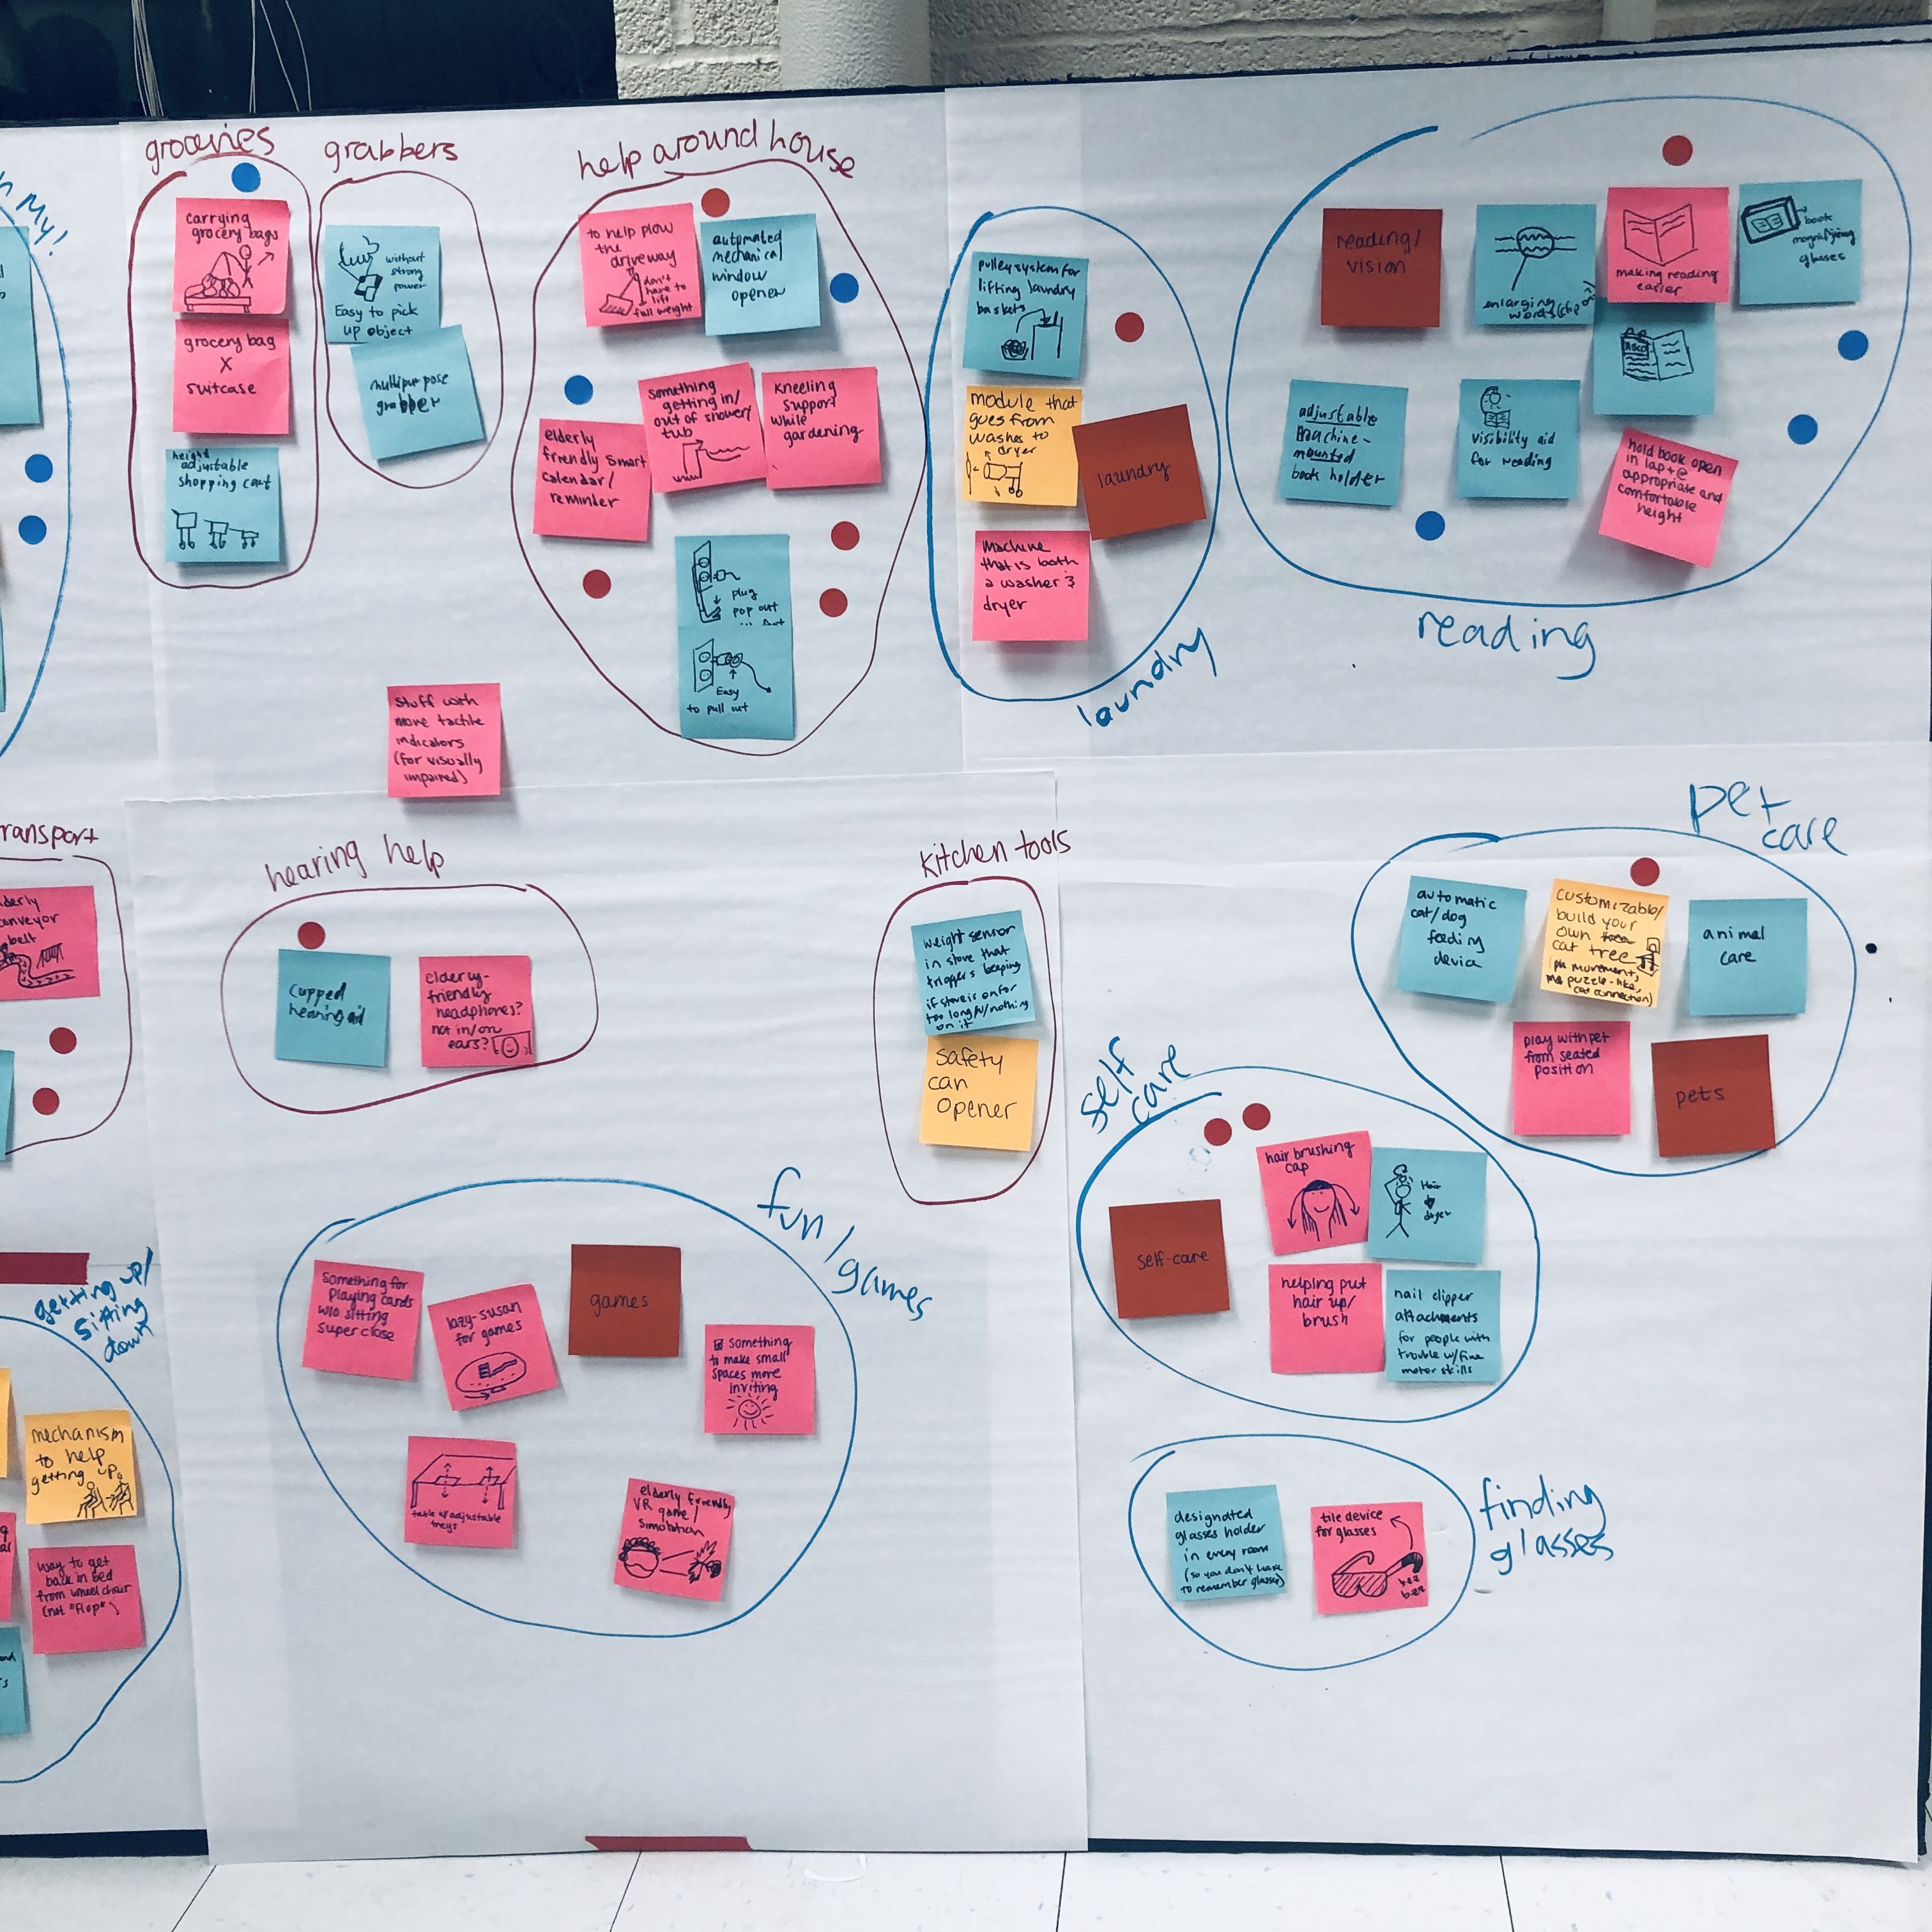 groceries
carrying
grocery bags
grocery bag
X
suitcase
height
adjustable
shopping cart
grabbers
without
strong
power
Easy to pick
up object
multipurpose
grabber
help around house
to help plow
the
driveway
don't
have to
lift
full weight
automated
mechanical
window
opener
elderly
friendly smart
calendar/
reminder
something
getting in/
out of shower/
tub
kneeling
support
while
gardening
plug
pop out
Easy
to pull out
My!
pulley system for
lifting laundry
baskets
module that
goes from
washer to
dryer
laundry
machine
that is both
a washer &
dryer
laundry
reading/
vision
enlarging
words
making reading
easier
book
magnifying
glasses
ABCD
adjustable
machine-
mounted
book holder
visibility aid
for reading
hold book open
in lap + @
appropriate and
comfortable
height
reading
stuff with
more tactile
indicators
(for visually
impaired)
ransport
derly
conveyor
belt
hearing help
cupped
hearing aid
elderly-
friendly
headphones?
not in/on
ears?
kitchen tools
weight sensor
in stove that
triggers beeping
if stove is on for
too long w/ nothing
on it
safety
can
opener
pet
care
automatic
cat/dog
feeding
device
customizable/
build your
own
cat tree
puzzle-like,
cat connection)
animal
care
play with pet
from seated
position
pets
self
care
hair brushing
cap
Hair
dryer
self-care
helping put
hair up/
brush
nail clipper
attachments
for people with
trouble w/ fine
motor skills
fun/games
something for
playing cards
w/o sitting
super close
lazy-susan
for games
games
something
to make small
spaces more
inviting
table w/ adjustable
trays
elderly friendly
VR game/
simulation
getting up/
sitting
down
mechanism
to help
getting up
way to get
back in bed
from wheelchair
(not "flop")
finding
glasses
designated
glasses holder
in every room
(so you don't have
to remember glasses)
tile device
for glasses
bzz
bzz